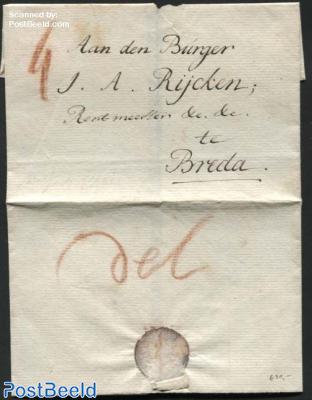 Scanned by:
PostBeeld.com
4
Aan den Burger
J. A. Rijcken;
Rentmeester &c. &c.
te
Breda.
Del
PostBeeld